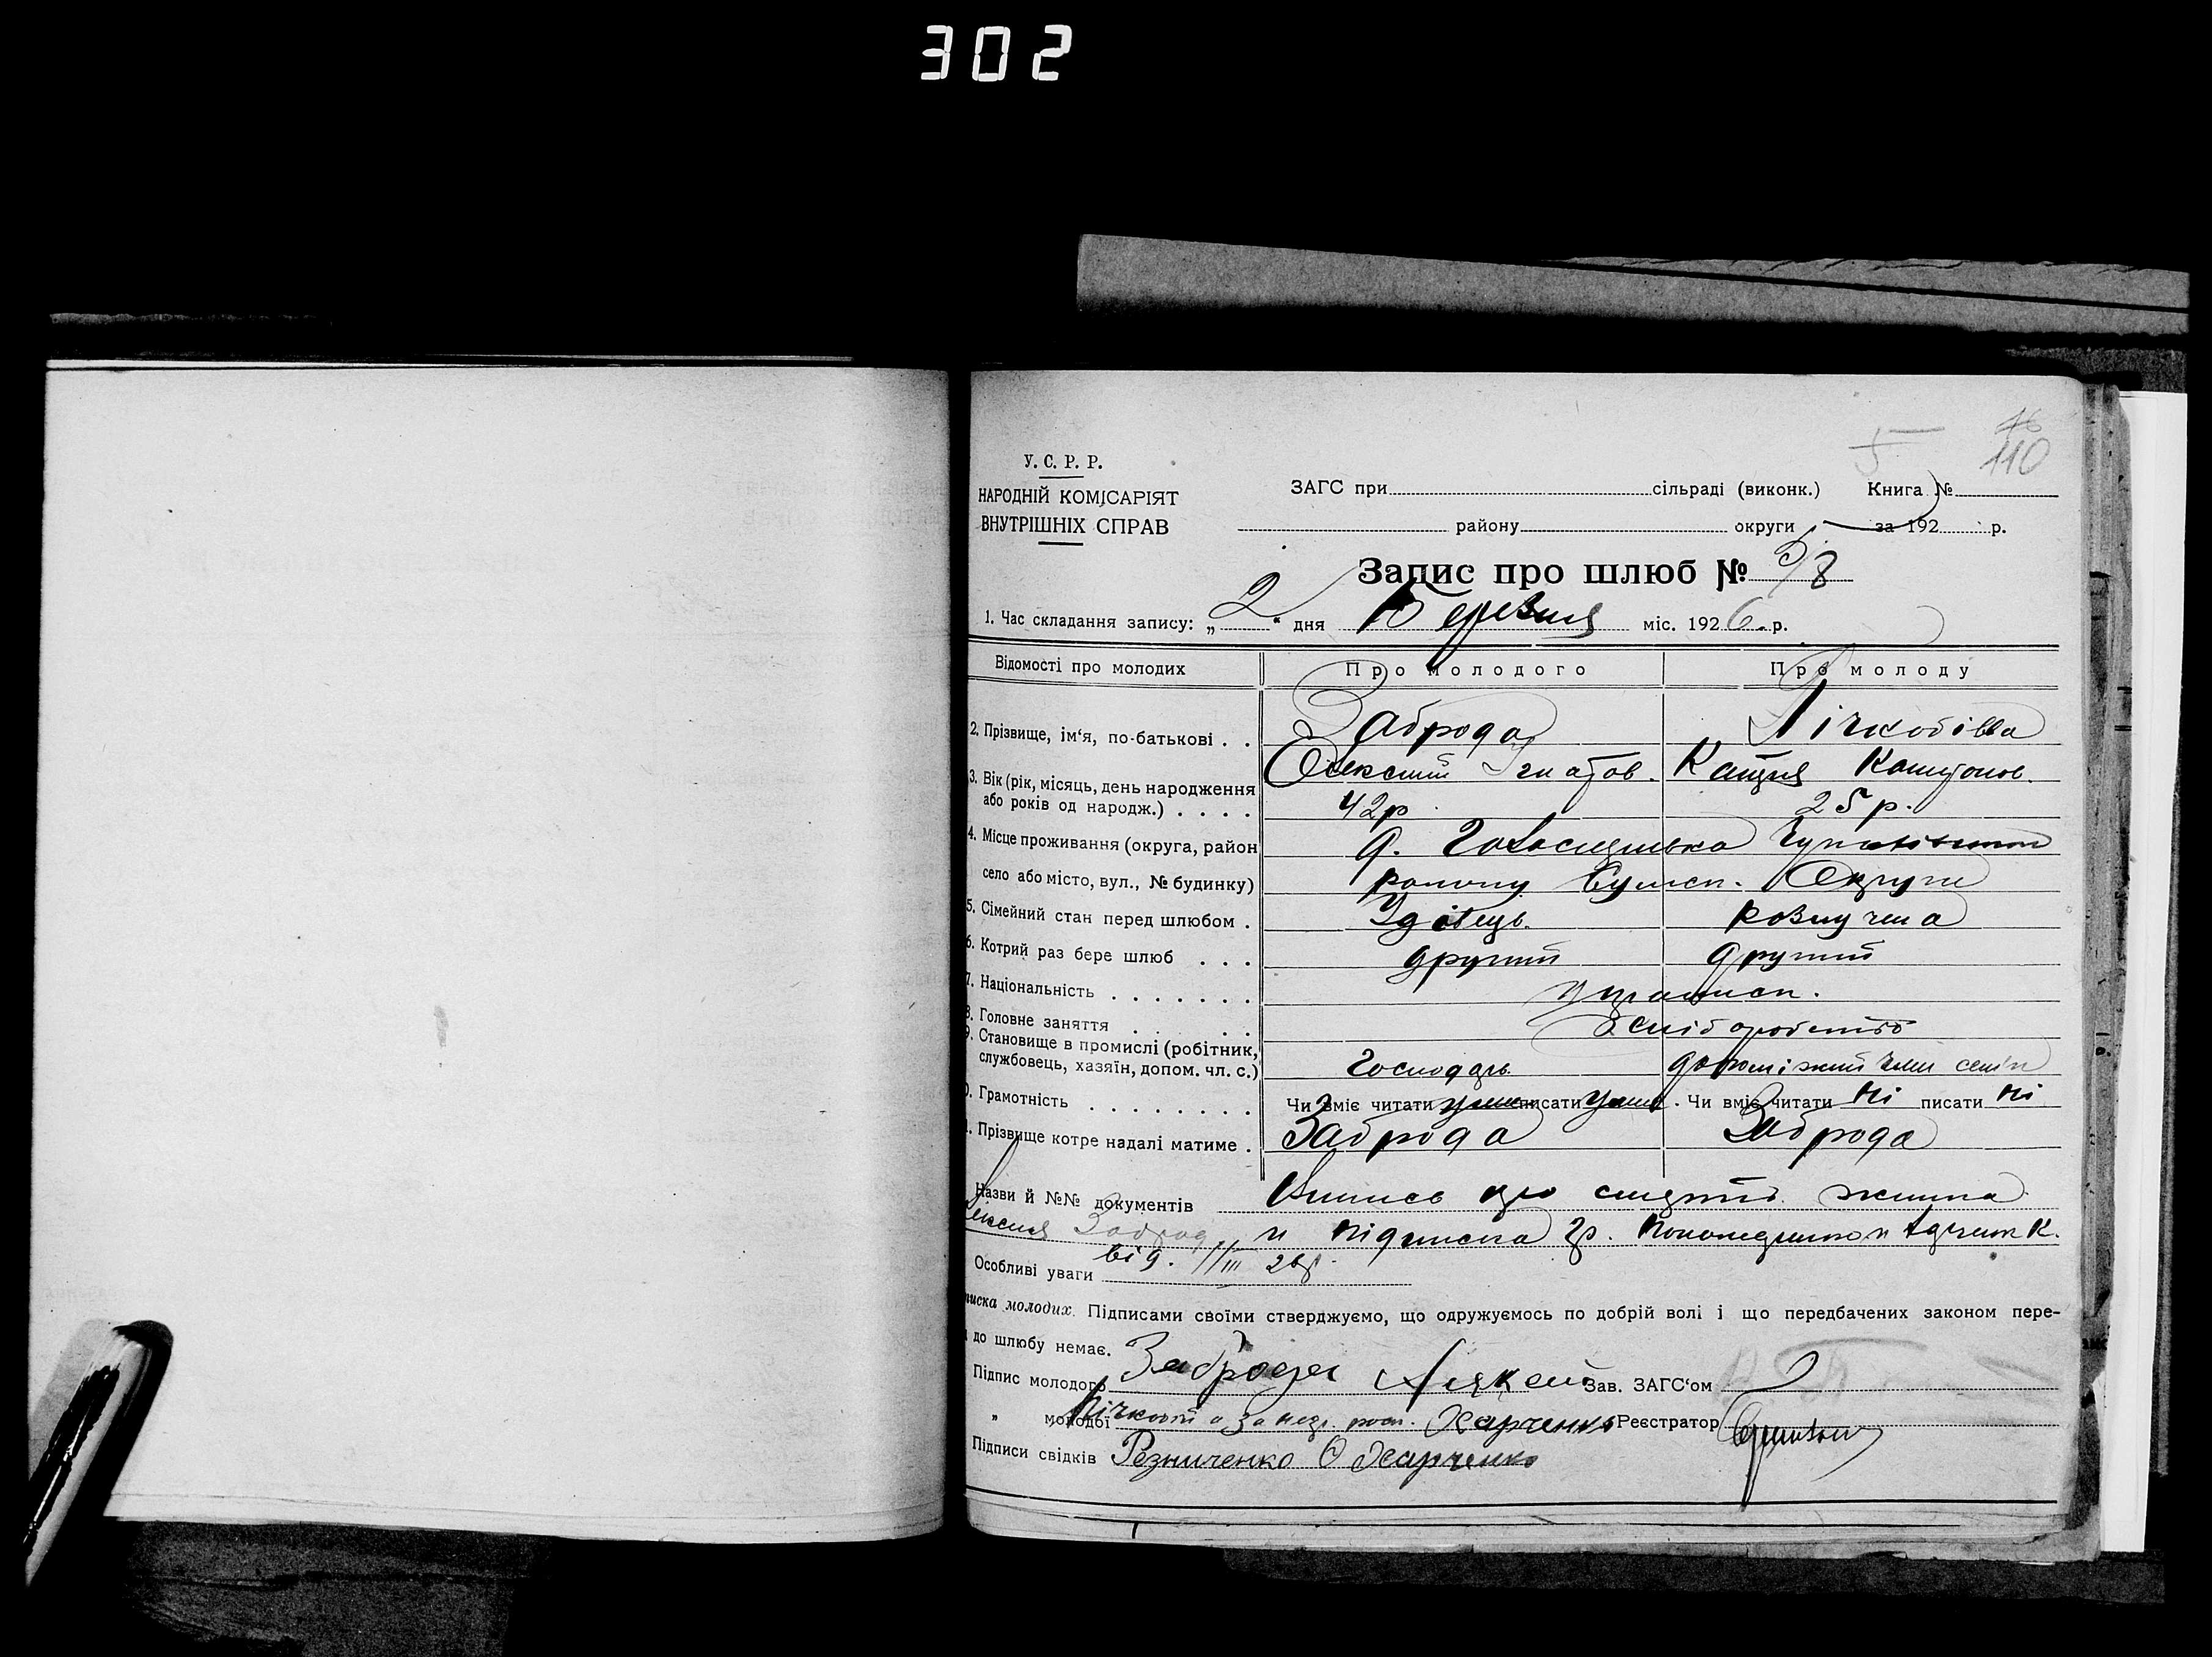 302
5
110
У. С. Р. Р.
НАРОДНІЙ КОМІСАРІЯТ
ВНУТРІШНІХ СПРАВ
ЗАГС при сільраді (виконк.) Книга №
району округи за 192 р.
Запис про шлюб № 5/8
1. Час складання запису: „2“ дня Березня міс. 1926 р.
Відомості про молодих Про молодого Про молоду
2. Прізвище, ім‘я, по-батькові . . Заброда
Олексій Ігнатов.
3. Вік (рік, місяць, день народження
або років од народж.) . . . . 42р 25 р.
4. Місце проживання (округа, район
село або місто, вул., № будинку) району Сумск. Округи
5. Сімейний стан перед шлюбом . Здівець. розлучена
6. Котрий раз бере шлюб . . . другий другий
7. Національність . . . . . . . україиск.
8. Головне заняття . . . хліборобство
9. Становище в промислі (робітник,
службовець, хазяїн, допом. чл. с.) Господарь допоміжний член семїи
0. Грамотність . . . . . . . . Чи вміє читати уміє писати уміє. Чи вміє читати ні писати ні
. Прізвище котре надалі матиме . Заброда Заброда
Назви й №№ документів Випись про смерть жинки
Заброд. и підписка гр.
від. 1/III 26р.
Особливі уваги
иска молодих. Підписами своїми стверджуємо, що одружуємось по добрій волі і що передбачених законом пере-
до шлюбу немає.
Підпис молодого Заброда Зав. ЗАГС‘ом
„ молодої за Харченко Реєстратор
Підписи свідків Резниченко О Харченко